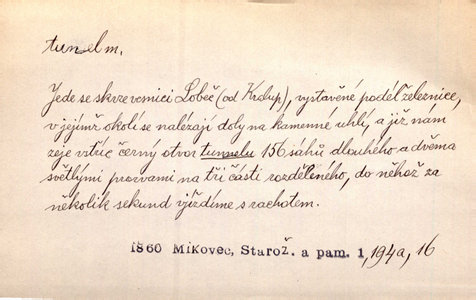 tunel m.
Jede se skrze vesnici Lobeč (od Kralup), vystavěné podél železnice,
v jejímž okolí se nalézají doly na kamenné uhlí, a již nám
zeje vstříc černý otvor tunelu 156 sáhů dlouhého a dvěma
světlými prorvami na tři části rozděleného, do něhož za
několik sekund vjíždíme s rachotem.
1860 Mikovec, Starož. a pam. 1, 194a, 16